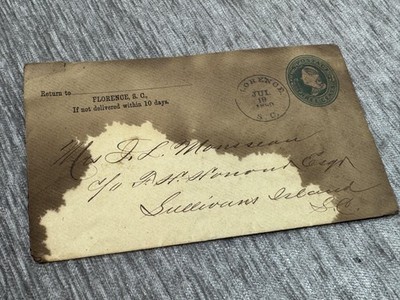 Return to
FLORENCE, S. C.,
If not delivered within 10 days.
LORENCE
JUL
10
S. C.
Mrs J. L.
c/o F. W. Esqr
Sullivans Island
S.C.